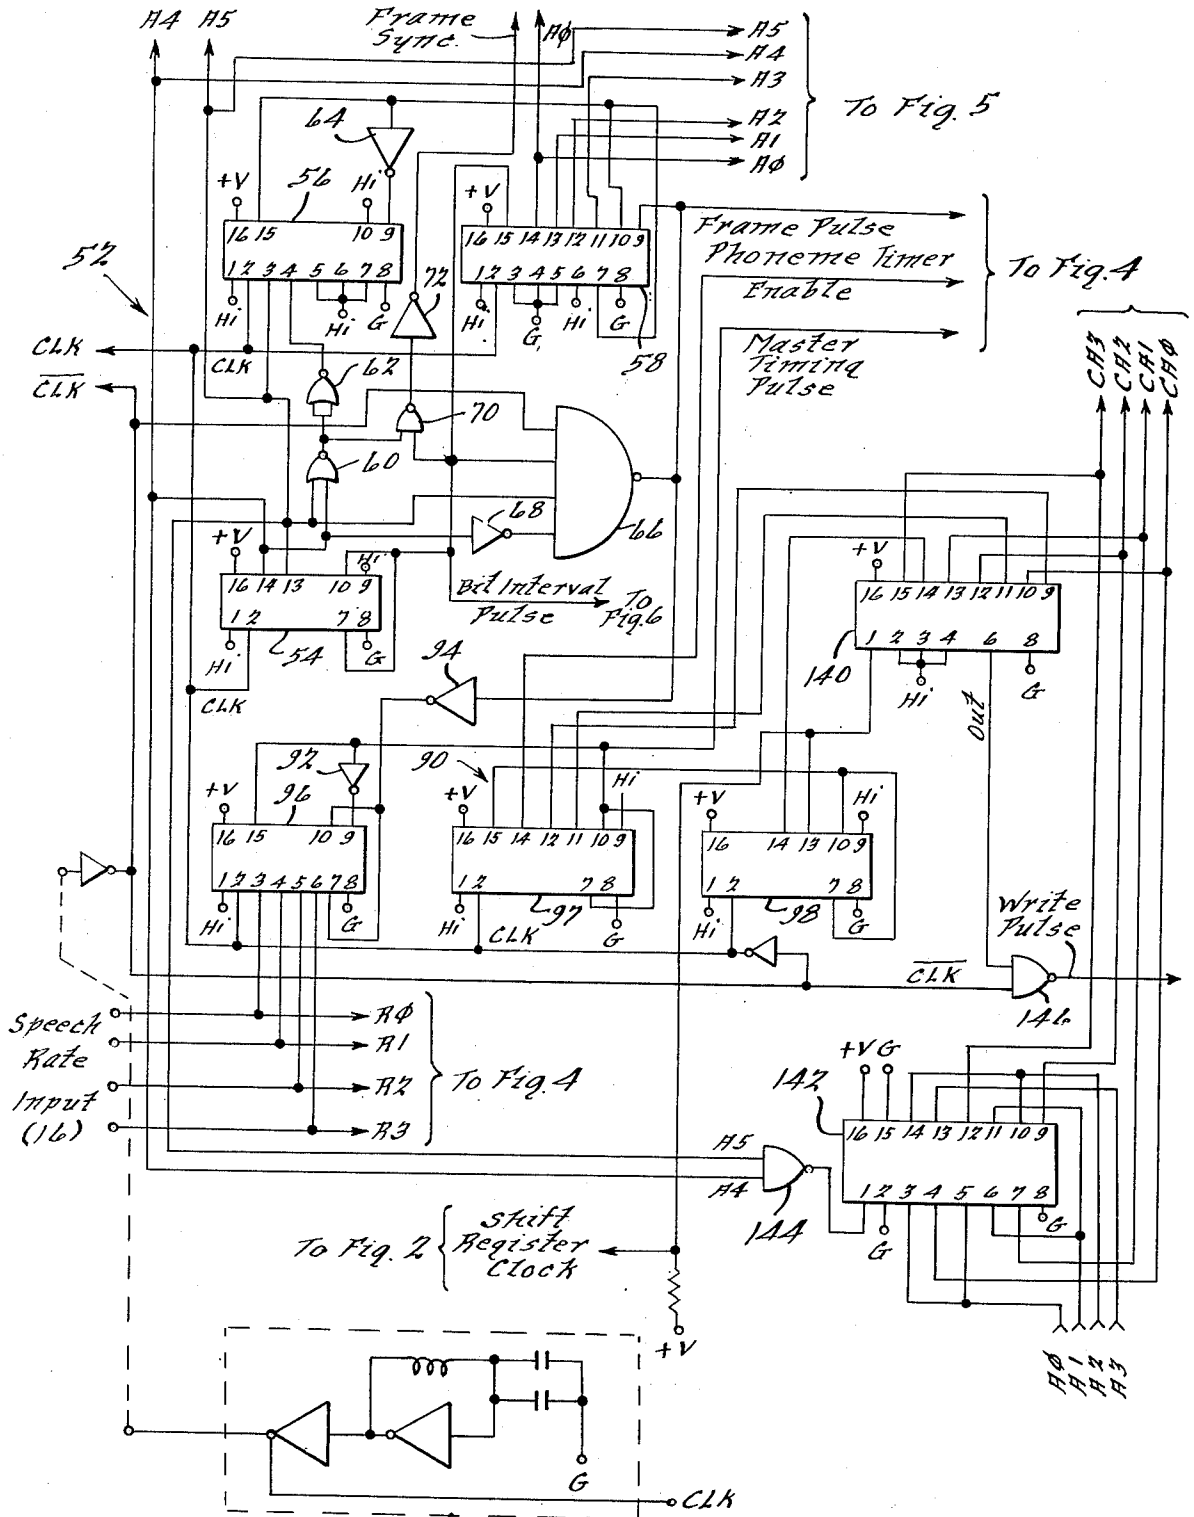 A4 A5 Frame Sync. AØ
A5
A4
A3
A2
A1
AØ
To Fig. 5
64
+V 56 Hi
16 15 10 9
1 2 3 4 5 6 7 8
Hi Hi G
+V
16 15 14 13 12 11 10 9
1 2 3 4 5 6 7 8
Hi G, Hi G
58
52
72
Frame Pulse
Phoneme Timer
Enable
Master
Timing
Pulse
To Fig. 4
CLK
CLK
CLK
62
70
60
68
66
CA3 CA2 CA1 CAØ
+V Hi
16 14 13 10 9
1 2 7 8
Hi 54 G
CLK
Bit Interval
Pulse
To
Fig. 6
94
+V
16 15 14 13 12 11 10 9
1 2 3 4 6 8
140 Hi G
Out
92
+V 96
16 15 10 9
1 2 3 4 5 6 7 8
Hi G
90
+V Hi
16 15 14 12 11 10 9
1 2 7 8
Hi 97 G
CLK
+V Hi
16 14 13 10 9
1 2 7 8
Hi 98 G
CLK
Write
Pulse
146
Speech
Rate
Input
(16)
RØ
R1
R2
R3
To Fig. 4
+V G
142
16 15 14 13 12 11 10 9
1 2 3 4 5 6 7 8
G G
A5
A4
144
To Fig. 2
Shift
Register
Clock
+V
AØ A1 A2 A3
G
CLK